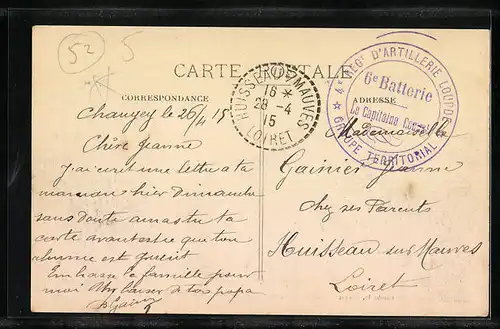 52
5
CARTE POSTALE
CORRESPONDANCE
ADRESSE
HUISSEAU S/ MAUVES
16 *
28 - 4
15
LOIRET
4e REGt D'ARTILLERIE LOURDE
6e Batterie
Le Capitaine
GROUPE TERRITORIAL
Changey le 26/4 15
Chère Jeanne
J'ai écrit une lettre a ta
maman hier Dimanche
sans doute auras tu ta
carte avant
est guérit
Embrasse la famille pour
moi Un baiser de ton papa
Mademoiselle
Gainier Jeanne
chez ses Parents
Huisseau sur Mauves
Loiret